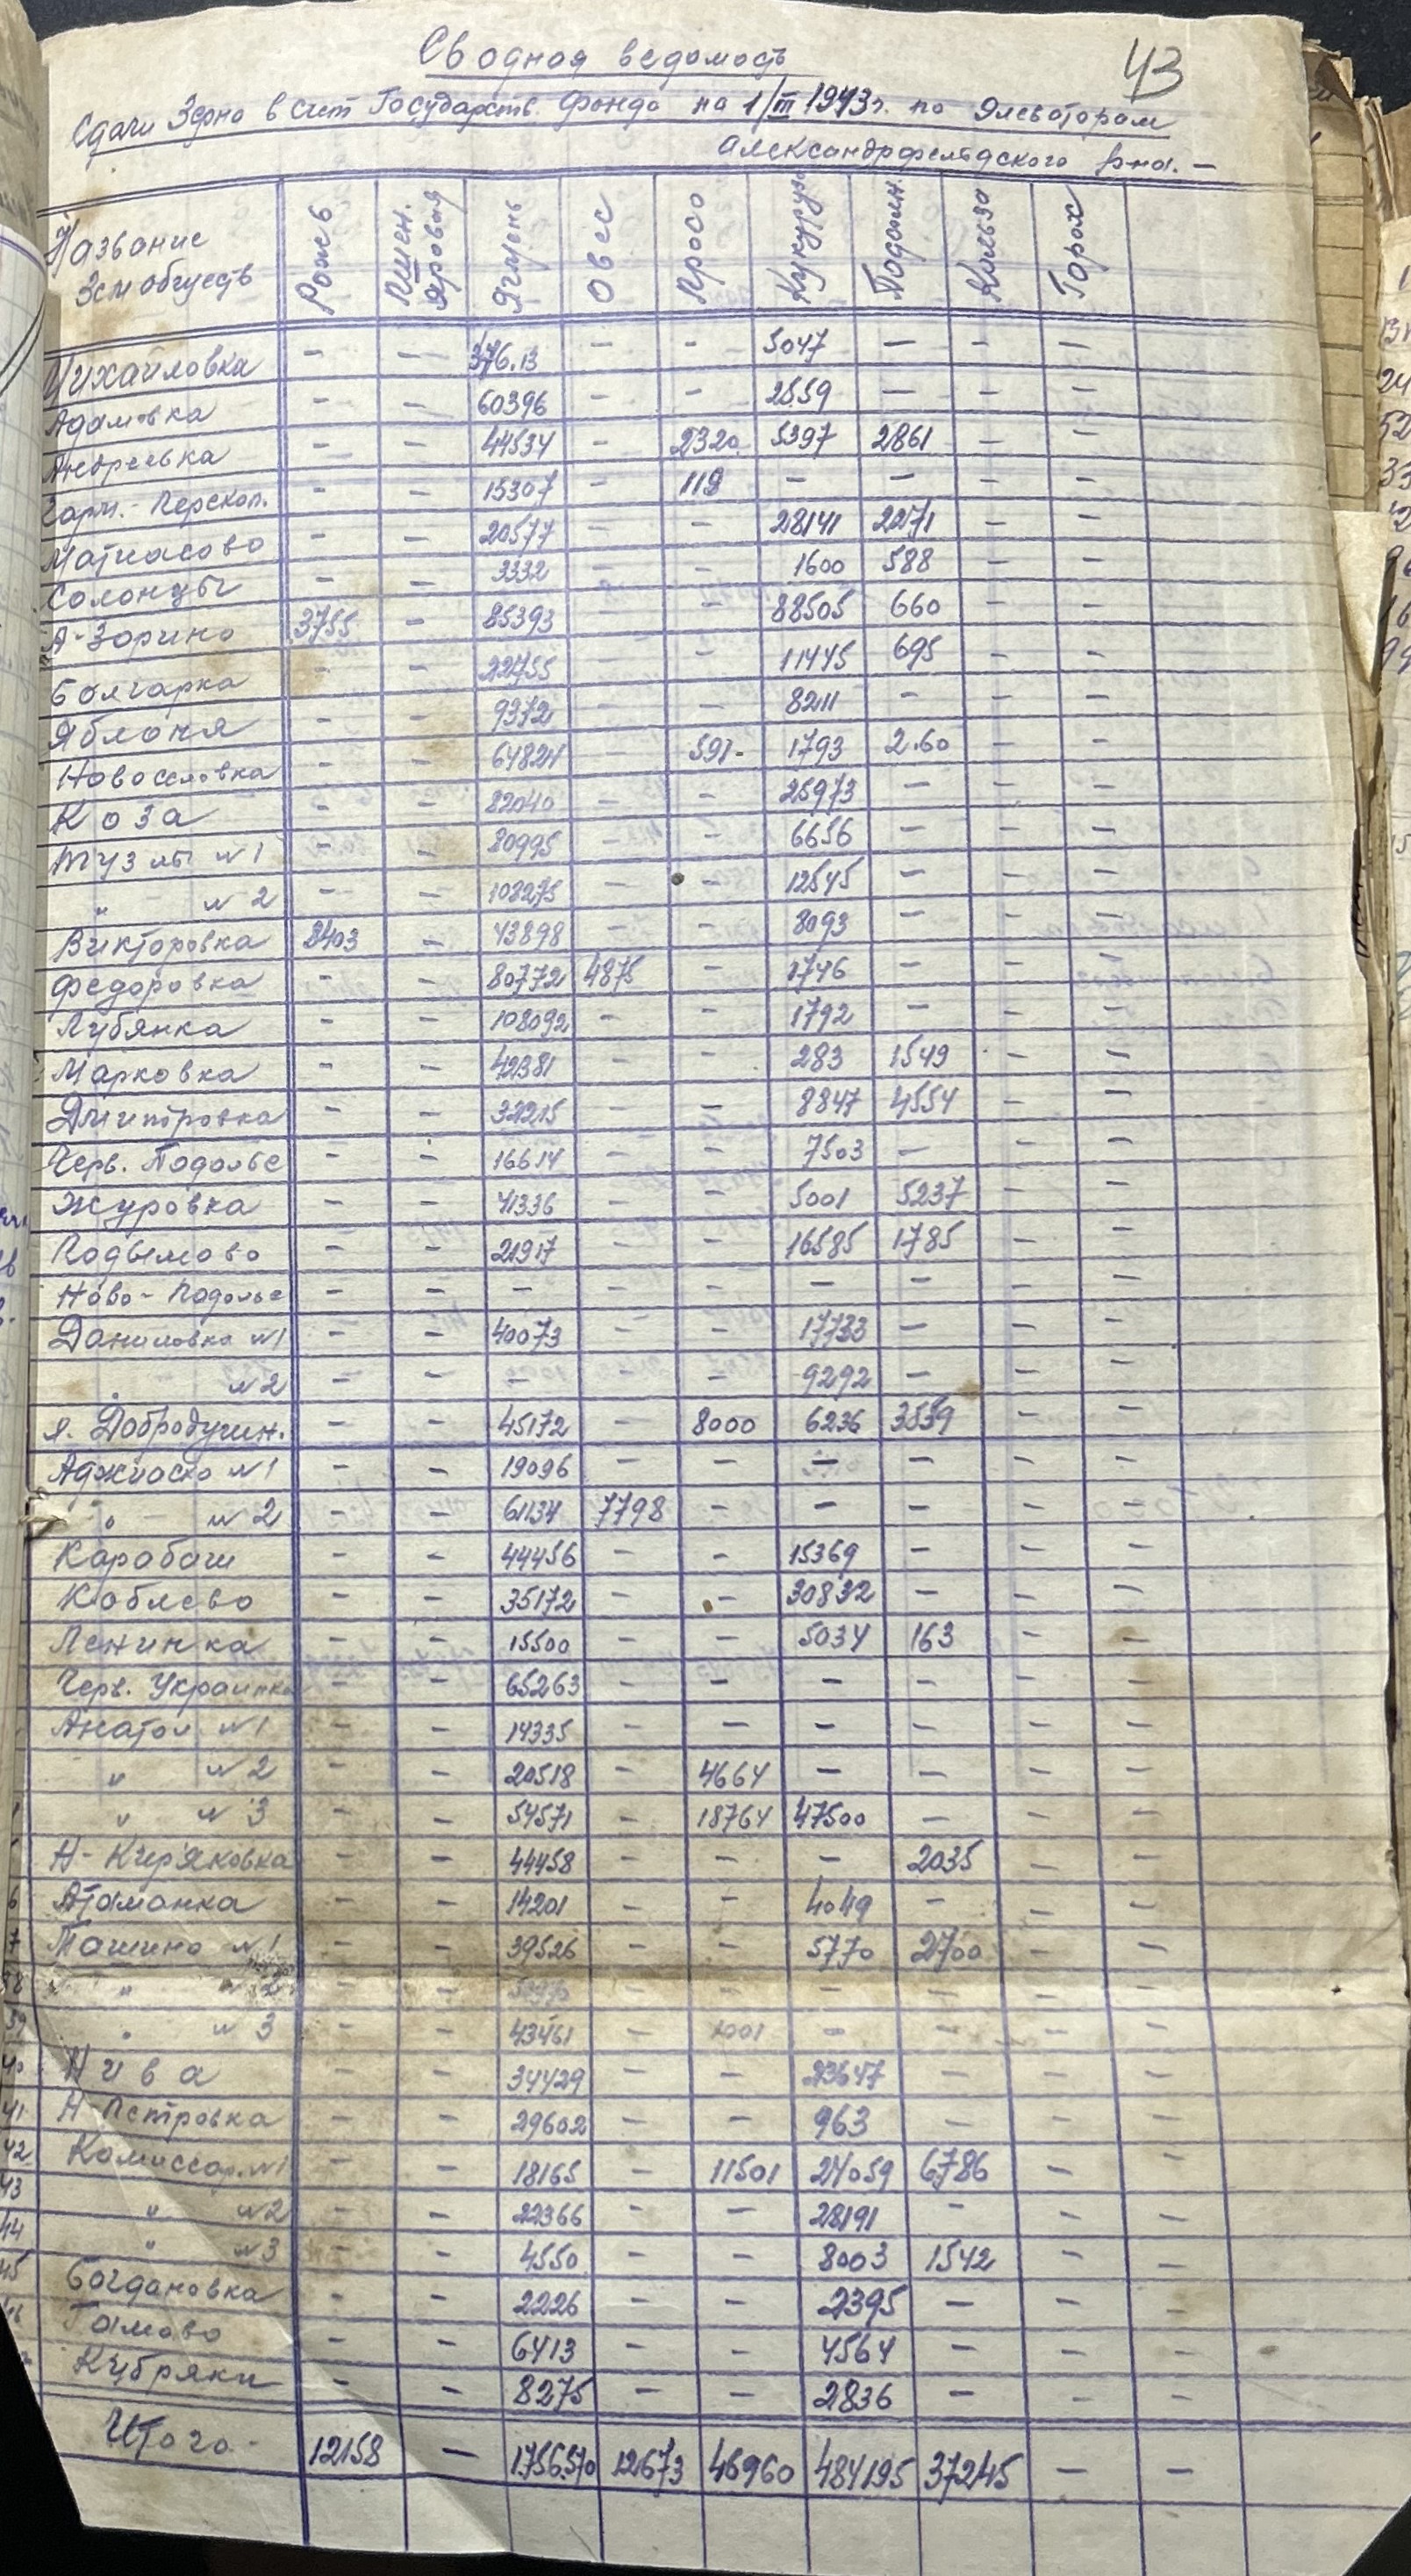 43
Сводная ведомость
Сдачи Зерна в счет Государств. Фонда на 1/III 1943 г. по Элеваторам
Александрфельдского р-на. —
Название Зем обществ | Рожь | Пшен. яровая | Ячмень | Овес | Просо | Кукуруза | Подсолн. | Кользо | Горох
Михайловка — — 376.13 — — 5047 — — —
Адамовка — — 60396 — — 2559 — — —
Андреевка — — 44534 — 2320 5397 2861 — —
Гарм.-Перекоп. — — 15307 — 119 — — — —
Матиасово — — 20577 — — 28141 2271 — —
Солонцы — — 3332 — — 1600 588 — —
А-Зорино 3755 — 85393 — — 88505 660 — —
Болгарка — — 22755 — — 11445 695 — —
Яблоня — — 9372 — — 8211 — — —
Новоселовка — — 64824 — 591- 1793 2.60 — —
Коза — — 82040 — — 25973 — — —
Тузлы №1 — — 80995 — — 6656 — — —
„ №2 — — 108275 — — 12545 — — —
Викторовка 8403 — 43898 — — 8093 — — —
Федоровка — — 80772 4875 — 1746 — — —
Лубянка — — 108092 — — 1792 — — —
Марковка — — 42381 — — 283 1549 — —
Дмитровка — — 32215 — — 8847 4554 — —
Черв. Подолье — — 16614 — — 7503 — — —
Журовка — — 41336 — — 5001 5237 — —
Подымово — — 21917 — — 16585 1785 — —
Ново-Подолье — — — — — — — — —
Даниловка №1 — — 40073 — — 17733 — — —
„ №2 — — — — — 9292 — — —
я. Добродучин. — — 45172 — 8000 6236 3559 — —
Аджиаско №1 — — 19096 — — — — — —
„ №2 — — 61134 7798 — — — — —
Карабаш — — 44456 — — 15369 — — —
Коблево — — 35172 — — 30832 — — —
Ленинка — — 15500 — — 5034 163 — —
Черв. Украинка — — 65263 — — — — — —
Анатол №1 — — 14335 — — — — — —
„ №2 — — 20518 — 4664 — — — —
„ №3 — — 54571 — 18764 47500 — — —
Н-Кирьяковка — — 44458 — — — 2035 — —
6 Атаманка — — 14201 — — 4049 — — —
7 Ташино №1 — — 39526 — — 5770 2700 — —
38 „ №2 — — — — — — — —
39 „ №3 — — 43461 — 1001 — — — —
40 Нива — — 34429 — — 23647 — — —
41 Н-Петровка — — 29602 — — 963 — — —
42 Комиссар. №1 — — 18165 — 11501 24059 6786 — —
43 „ №2 — — 22366 — — 28191 — — —
44 „ №3 — — 4550 — — 8003 1542 — —
45 Богдановка — — 2226 — — 2395 — — —
46 Гамово — — 6413 — — 4564 — — —
Кубряки — — 8275 — — 2836 — — —
Итого 12158 — 1.756.570 12673 46960 484195 37245 — —